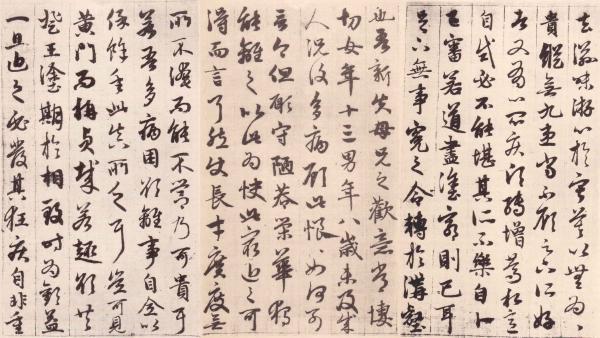 去滋味游心於寂莫以無為為
貴縱無九患尚不顧足下所好
者又有心悶疾頃轉增篤私意
自試必不能堪其所不樂自卜
已審若道盡塗窮則已耳
足下無事冤之令轉於溝壑
也吾新失母兄之歡意常悽
切女年十三男年八歲未及成
人況復多病顧此恨恨如何可
言今但願守陋巷榮華獨
能離之以此為快此最近之可
得而言耳然使長才廣度無
所不淹而能不營乃可貴耳
若吾多病困欲離事自全以
保餘年此真所乏耳豈可見
黃門而稱貞哉若趣欲共
登王塗期於相致時為歡益
一旦迫之必發其狂疾自非重